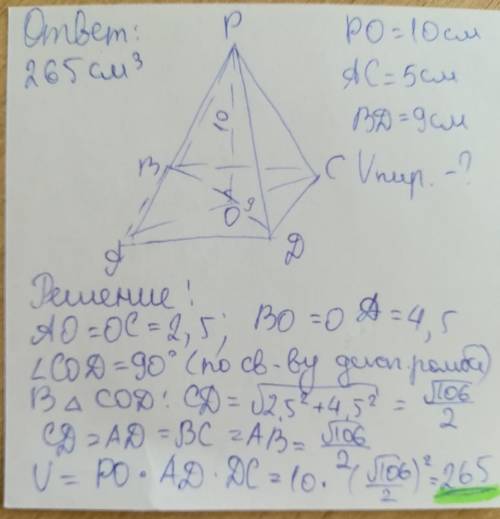 Ответ:
265 см³
P
10
B
C
O
9
A
D
PO = 10 см
AC = 5 см
BD = 9 см
Vпир. - ?
Решение:
AO = OC = 2,5; BO = OД = 4,5
∠COD = 90° (по св-ву диаг. ромба)
В △ COD: CD = √2,5² + 4,5² = √106/2
CD = AD = BC = AB = √106/2
V = PO · AD · DC = 10 · (√106/2)² = 265